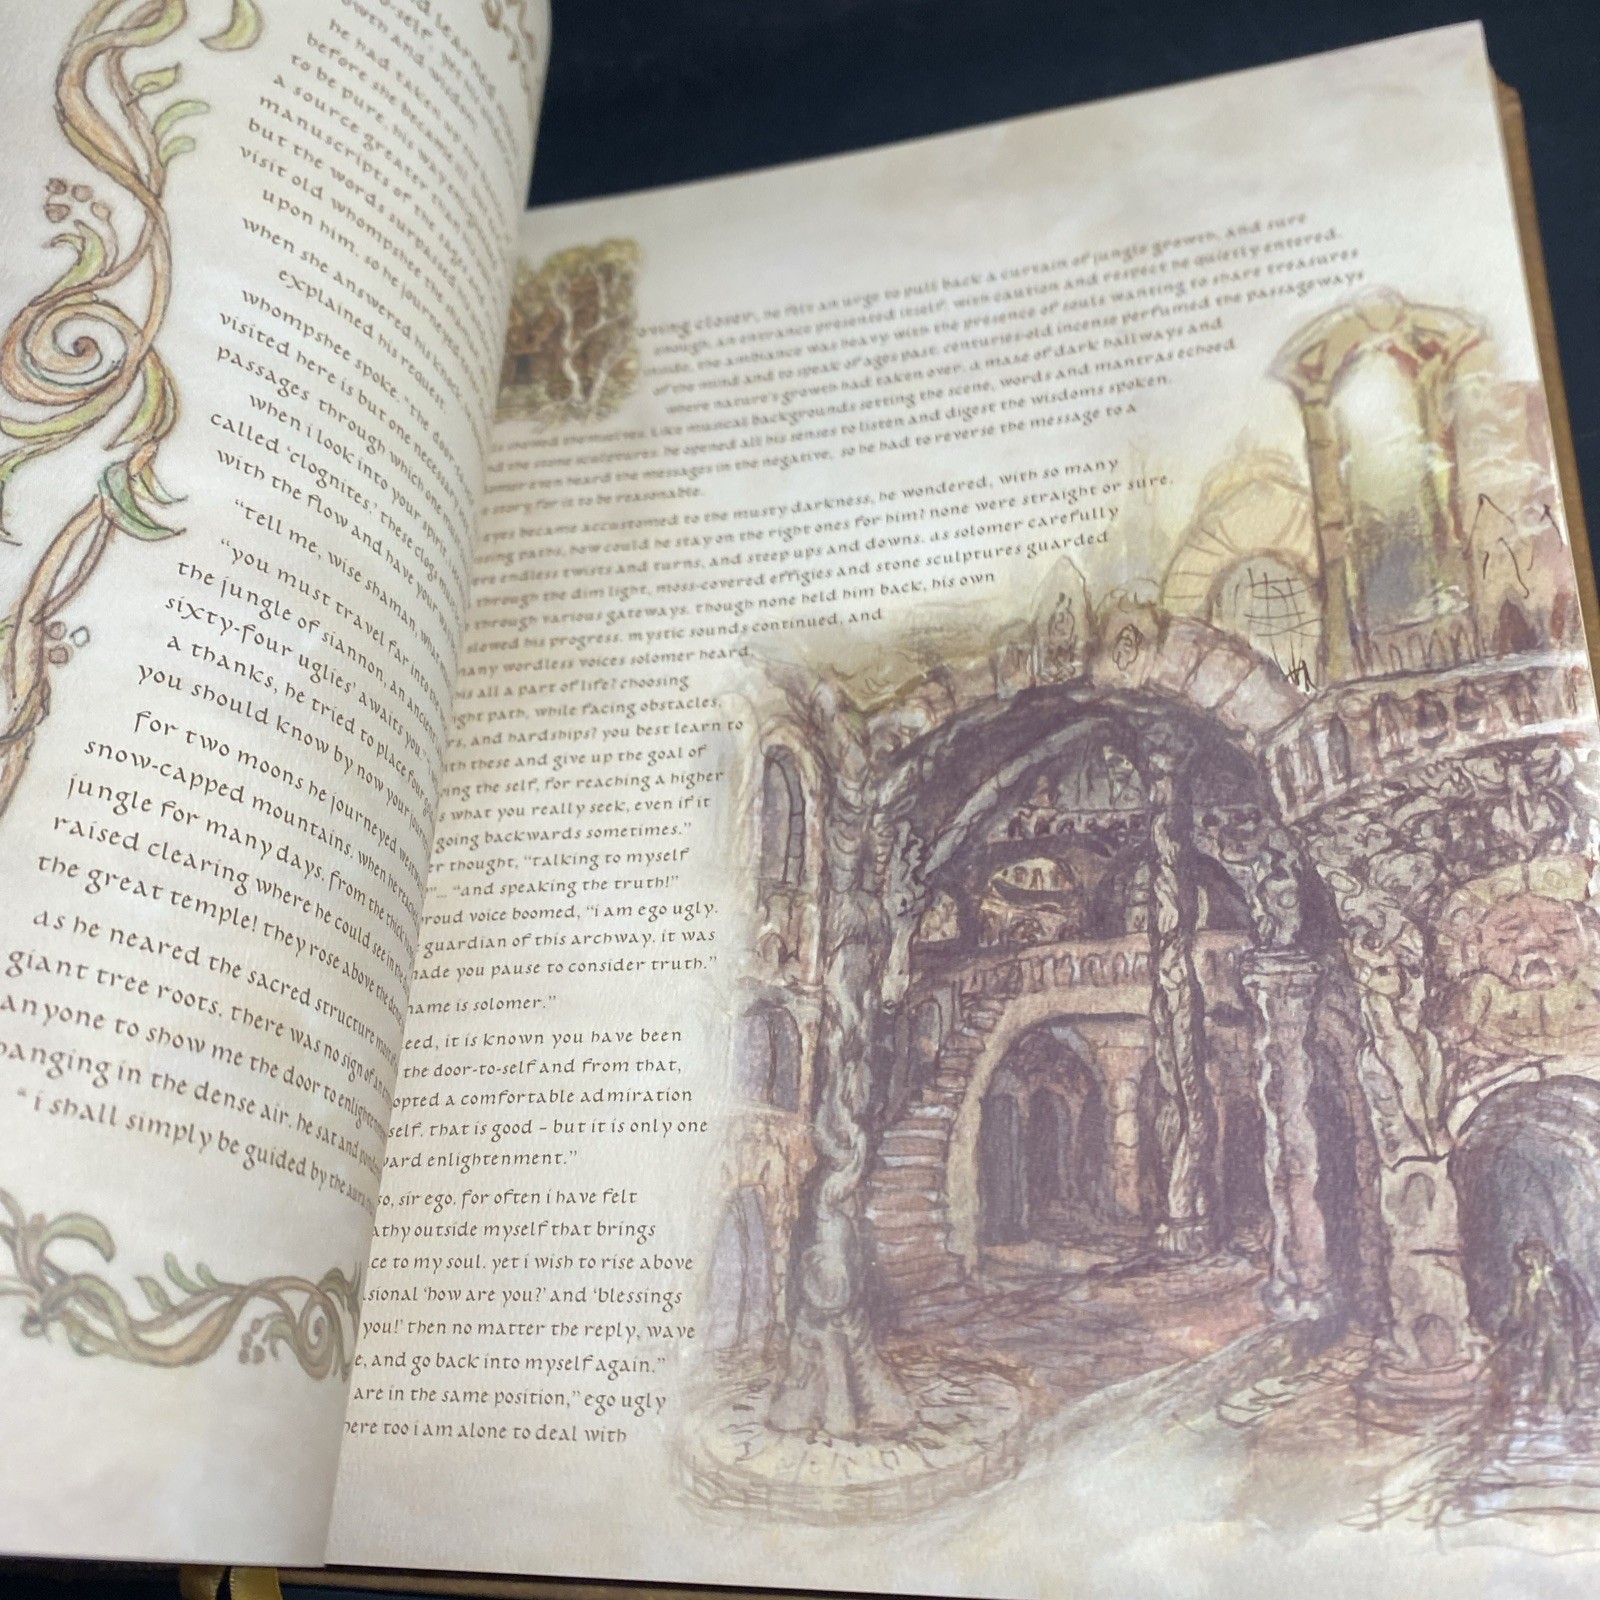 d learned
-self, yet his
owth and wisdom.
he had taken up the
before she became ill, but
to be pure, his way enlightened
a source greater than
manuscripts of the sages and
but the words surpassed his
visit old whompshee the shaman,
upon him. so he journeyed to
when she answered his knock, he
explained his request.
whompshee spoke. "the door-to-
visited here is but one necessary
passages through which one must
when i look into your spirit, i
called 'clognites.' these clogs must
with the flow and have your way
"tell me, wise shaman, what
"you must travel far into the
the jungle of siannon, an ancient
sixty-four uglies' awaits you."
a thanks, he tried to place four
you should know by now your
for two moons he journeyed westward
snow-capped mountains. when he reached
jungle for many days. from the thick
raised clearing where he could see in the
the great temple! they rose above the dense
as he neared the sacred structure
giant tree roots. there was no sign of
anyone to show me the door to enlightenment
hanging in the dense air. he sat and
"i shall simply be guided by the aura
oving closer, he felt an urge to pull back a curtain of jungle growth, and sure
enough, an entrance presented itself. with caution and respect he quietly entered.
inside, the ambiance was heavy with the presence of souls wanting to share treasures
of the mind and to speak of ages past. centuries-old incense perfumed the passageways
where nature's growth had taken over. a maze of dark hallways and
showed themselves. like musical backgrounds setting the scene, words and mantras echoed
nd the stone sculptures. he opened all his senses to listen and digest the wisdoms spoken.
lomer even heard the messages in the negative, so he had to reverse the message to a
e story for it to be reasonable.
eyes became accustomed to the musty darkness, he wondered, with so many
ssing paths, how could he stay on the right ones for him? none were straight or sure.
ere endless twists and turns, and steep ups and downs. as solomer carefully
through the dim light, moss-covered effigies and stone sculptures guarded
through various gateways. though none held him back, his own
slowed his progress. mystic sounds continued, and
many wordless voices solomer heard,
is all a part of life? choosing
ight path, while facing obstacles,
rs, and hardships? you best learn to
ith these and give up the goal of
ving the self, for reaching a higher
s what you really seek, even if it
going backwards sometimes."
er thought, "talking to myself
"... "and speaking the truth!"
roud voice boomed, "i am ego ugly,
guardian of this archway. it was
made you pause to consider truth."
name is solomer."
eed, it is known you have been
the door-to-self and from that,
opted a comfortable admiration
self. that is good – but it is only one
ward enlightenment."
so, sir ego. for often i have felt
athy outside myself that brings
ce to my soul. yet i wish to rise above
sional 'how are you?' and 'blessings
you!' then no matter the reply, wave
e, and go back into myself again."
are in the same position," ego ugly
here too i am alone to deal with